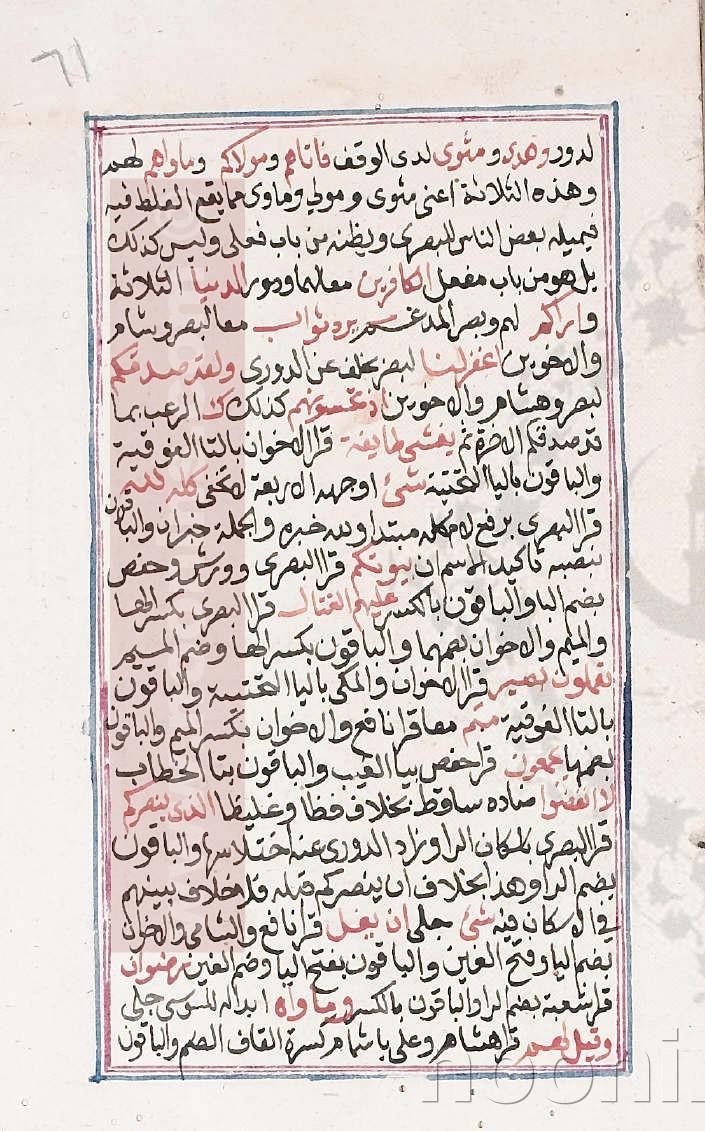 ٦١
لدور وهدى ومثوى لدى الوقف فاتاهم ومولاكم وماواهم لهم
وهذه الثلاثة اعنى مثوى ومولى وماوى مما يقع الغلط فيه
فيميله بعض الناس للبصرى ويظنه من باب فعلى وليس كذلك
بل هو من باب مفعل الكافرين معا لهما ودور الدنيا الثلاثة
واراكم لهم وبصر المدغم يرد ثواب معا لبصر وشام
والاخوين اغفر لنا لبصر بخلف عن الدورى ولقد صدقكم
لبصر وهشام والاخوين اذ تحسونهم كذلك ك الرعب بما
قد صدقكم الاخرة ثم يغشى طايفة قرا الاخوان بالتا الفوقية
والباقون باليا التحتية شئ اوجهه الاربعة لا تخفى كله لله
قرا البصرى برفع لام كله مبتدا ولله خبره والجملة خبر ان والباقون
بنصبه تاكيد الاسم ان بيوتكم قرا البصرى وورش وحفص
بضم البا والباقون بالكسر عليهم القتال قرا البصرى بكسر الها
والميم والاخوان بضمهما والباقون بكسر الها وضم الميم
تعملون بصير قرا الاخوان والمكى باليا التحتية والباقون
بالتا الفوقية متم معا قرا نافع والاخوان بكسر الميم والباقون
بضمها يجمعون قرا حفص بيا الغيب والباقون بتا الخطاب
لا انفضوا ضاده ساقط بخلاف فظا وغليظا الذى ينصركم
قرا البصرى باسكان الرا وزاد الدورى عنه اختلاسها والباقون
بضم الرا وهذا بخلاف ان ينصركم قبله فلا خلاف بينهم
فى الاسكان فيه شئ جلى ان يغل قرا نافع والشامى والاخوان
بضم اليا وفتح الغين والباقون بفتح اليا وضم الغين رضوان
قرا شعبة بضم الرا والباقون بالكسر وماواه ابداله للسوسى جلى
وقيل لهم قرا هشام وعلى باشمام كسرة القاف الضم والباقون